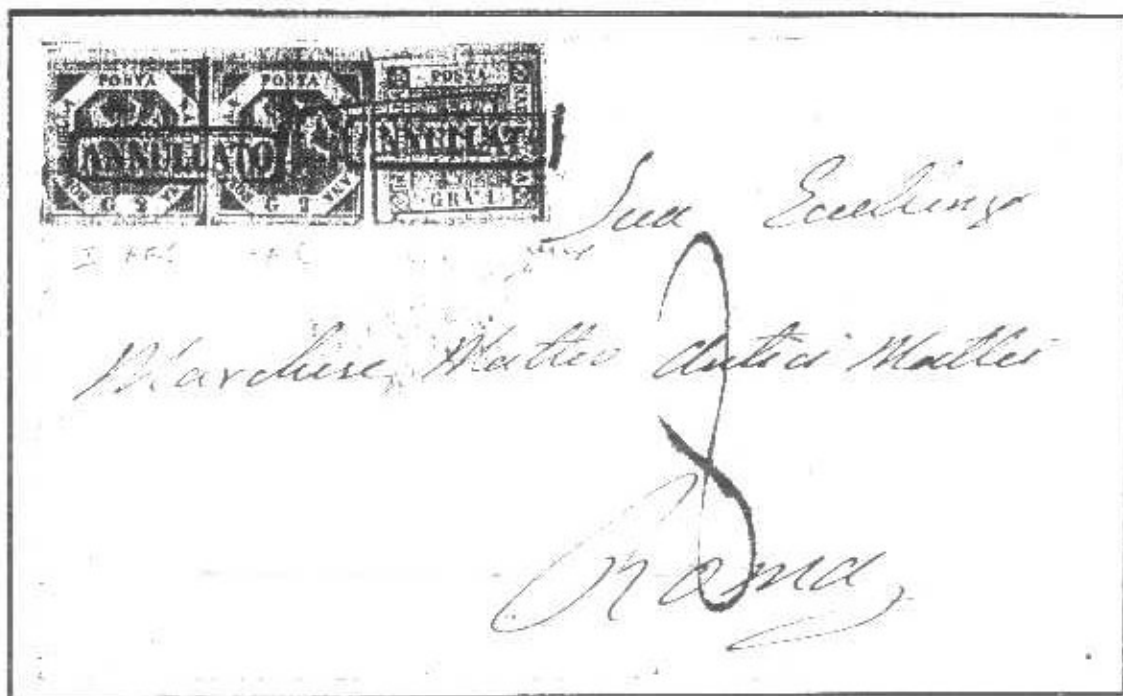 POSTA POSTA POSTA
ANNULLATO ANNULLAT
G 2 G 2 GRA 1
Sua Eccellenza
Marchese Matteo Antici Mattei
8
Roma